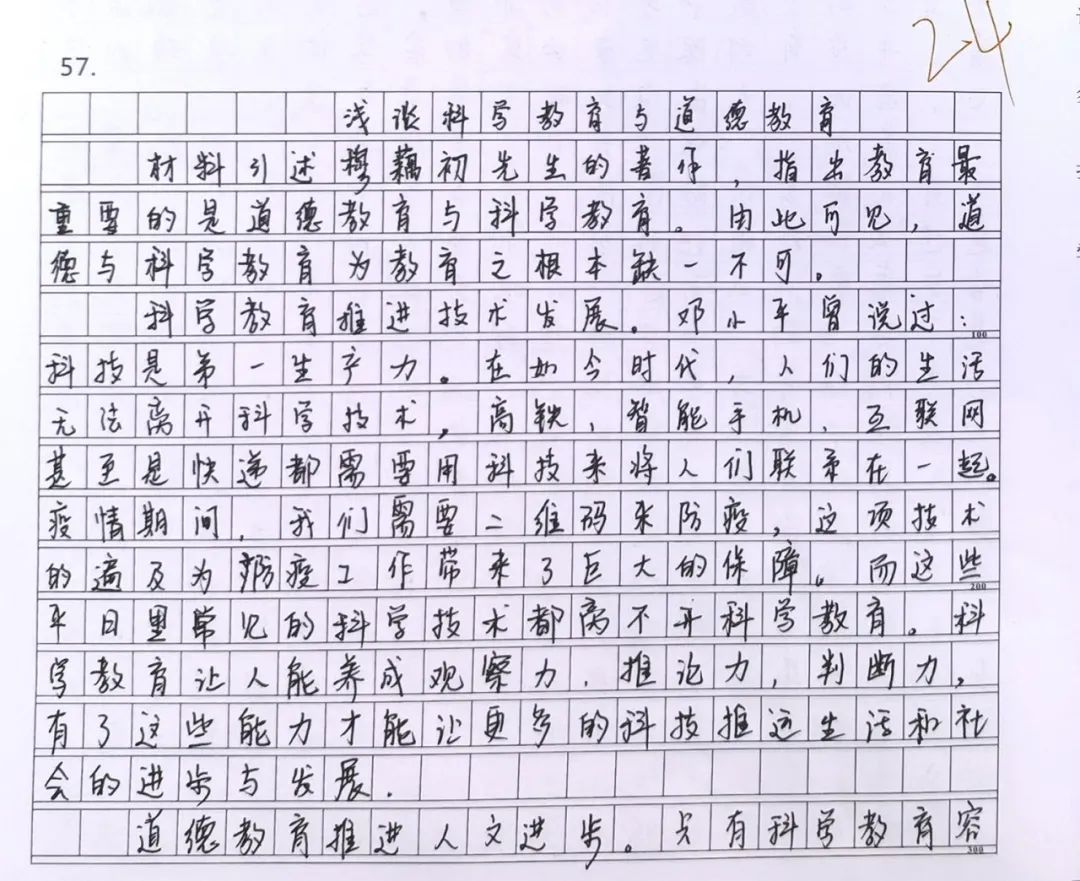 24
57.
浅谈科学教育与道德教育
材料引述穆藕初先生的著作,指出教育最
重要的是道德教育与科学教育。由此可见,道
德与科学教育为教育之根本缺一不可。
科学教育推进技术发展。邓小平曾说过:
100
科技是第一生产力。在如今时代,人们的生活
无法离开科学技术,高铁、智能手机、互联网
甚至是快递都需要用科技来将人们联系在一起。
疫情期间,我们需要二维码来防疫,这项技术
的遍及为防疫工作带来了巨大的保障。而这些
200
平日里常见的科学技术都离不开科学教育。科
学教育让人能养成观察力、推论力,判断力,
有了这些能力才能让更多的科技推进生活和社
会的进步与发展.
道德教育推进人文进步。只有科学教育容
300